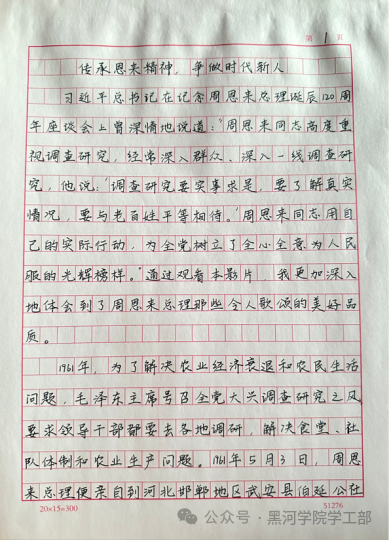 第 1 页
传承恩来精神，争做时代新人
习近平总书记在记念周恩来总理诞辰120周
年座谈会上曾深情地说道："周恩来同志高度重
视调查研究，经常深入群众、深入一线调查研
究，他说：'调查研究要实事求是，要了解真实
情况，要与老百姓平等相待。'周恩来同志用自
己的实际行动，为全党树立了全心全意为人民
服的光辉榜样。"通过观看本影片，我更加深入
地体会到了周恩来总理那些令人歌颂的美好品
质。
1961年，为了解决农业经济衰退和农民生活
问题，毛泽东主席号召全党大兴调查研究之风
要求领导干部都要去各地调研，解决食堂、社
队体制和农业生产问题。1961年5月3日，周恩
来总理便亲自到河北邯郸地区武安县伯延公社
20×15=300
51276
公众号·黑河学院学工部